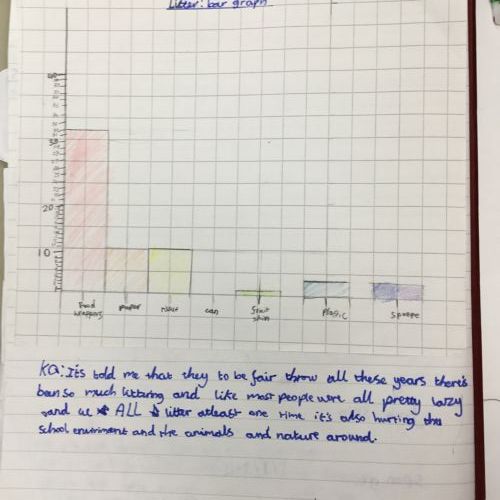 Litter: bar graph
40
30
20
10
food wrappers
paper
can
fruit skin
Plastic
KQ: It's told me that they to be fair throw all these years there's
been so much littering and like most people were all pretty lazy
and we ALL litter atleast one time it's also hurting the
school enviriment and the animals and nature around.